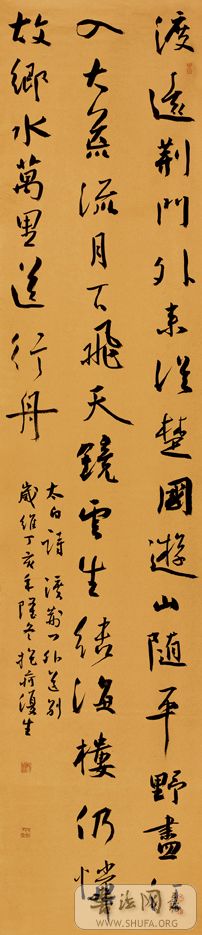 渡遠荊門外來從楚國遊山隨平野盡江
入大荒流月下飛天鏡雲生結海樓仍憐
故鄉水萬里送行舟
太白詩渡荊門外送別
歲維丁亥年隆冬
書法网
WWW.SHUFA.ORG